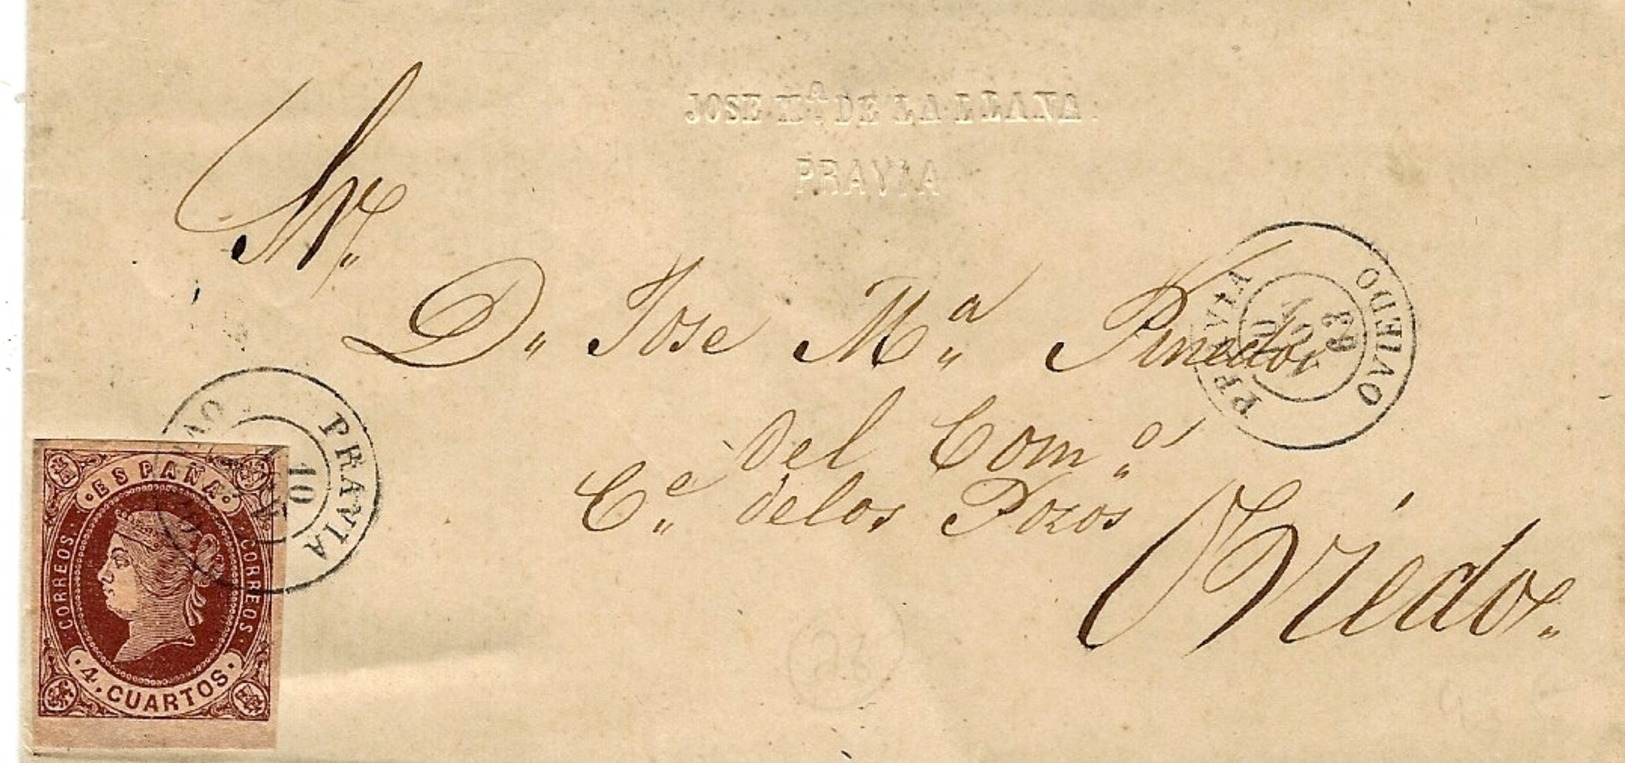 JOSE Mª. DE LA LLANA.
PRAVIA
Sr.
D. Jose Mª. Pinedo
del Comº.
Cᵉ. de los Pozos
Oviedo.
PRAVIA
10
63
OVIEDO
PRAVIA
10
·ESPAÑA·
CORREOS.
CORREOS.
·4. CUARTOS·